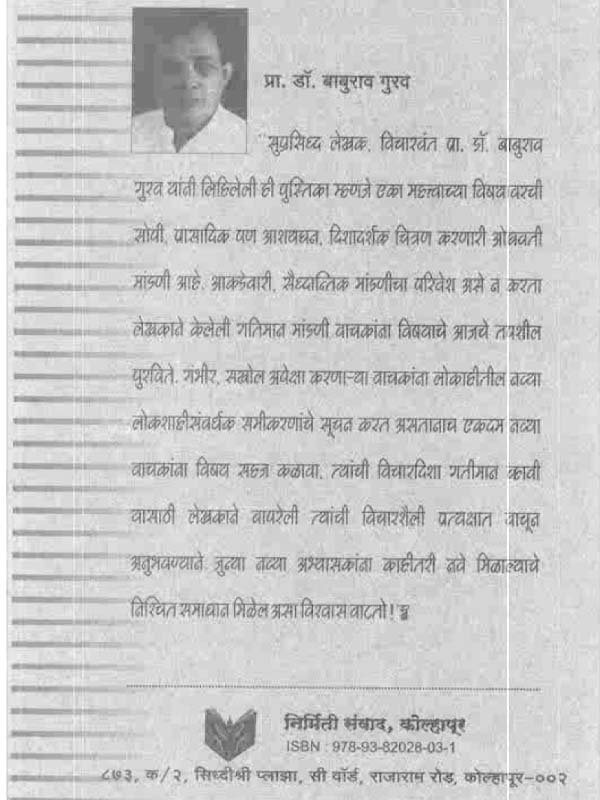 प्रा. डॉ. बाबुराव गुरव
"सुप्रसिध्द लेखक, विचारवंत प्रा. डॉ. बाबुराव
गुरव यांनी लिहिलेली ही पुस्तिका म्हणजे एका महत्त्वाच्या विषयावरची
सोपी, प्रासादिक पण आशयघन, दिशादर्शक चित्रण करणारी ओघवती
मांडणी आहे. आकडेवारी, सैध्दान्तिक मांडणीचा परिवेश असे न करता
लेखकाने केलेली गतिमान मांडणी वाचकांना विषयाचे आजचे तपशील
पुरविते. गंभीर, सखोल अपेक्षा करणाऱ्या वाचकांना लोकाहीतील नव्या
लोकशाहीसंवर्धक समीकरणांचे सूचन करत असतानाच एकदम नव्या
वाचकांना विषय सहज कळावा, त्यांची विचारदिशा गतीमान व्हावी
यासाठी लेखकाने वापरेली त्यांची विचारशैली प्रत्यक्षात वाचून
अनुभवण्याने जुन्या नव्या अभ्यासकांना काहीतरी नवे मिळाल्याचे
निश्चित समाधान मिळेल असा विश्वास वाटतो!
निर्मिती संवाद, कोल्हापूर
ISBN : 978-93-82028-03-1
८७३, क/२, सिध्दीश्री प्लाझा, सी वॉर्ड, राजाराम रोड, कोल्हापूर-००२